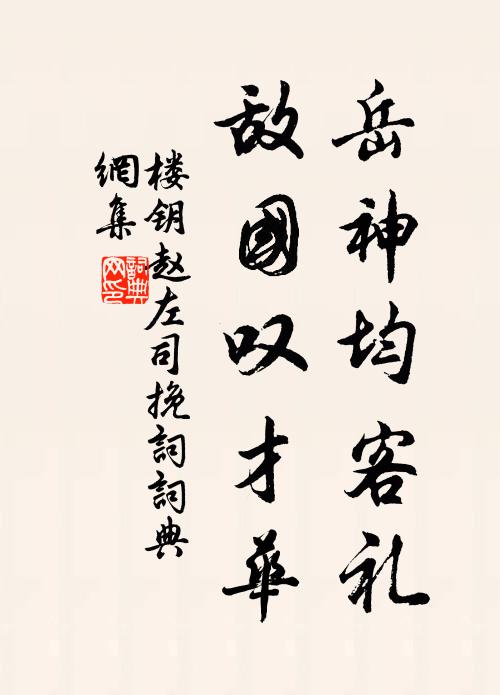 岳神均客礼
敌國叹才華
楼钥赵左司挽詞詞典
網集
詞典网印